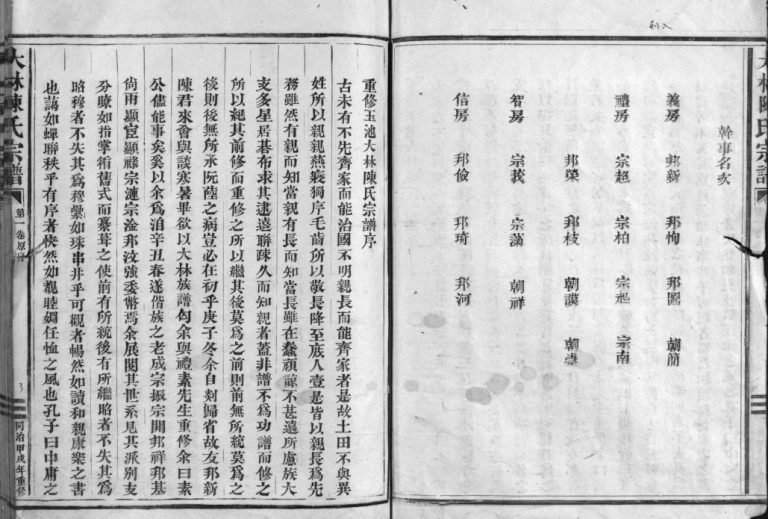 入利
大林陳氏宗譜
幹事名次
義房 邦新 邦恂 邦國 朝簡
禮房 宗超 宗柏 宗起 宗南
邦榮 邦枝 朝謨 朝臺
智房 宗義 宗藻 朝祥
信房 邦儉 邦琦 邦河
重修玉池大林陳氏宗譜序
古未有不先齊家而能治國不明親長而能齊家者是故土田不與異
姓所以親親燕寢獨序毛齒所以敬長降至庶人壹是皆以親長爲先
務雖然有親而知當親有長而知當長雖在蠢頑諒不甚遠所慮族大
支多星居碁布求其逮遠聯疎久而知親者蓋非譜不爲功譜而修之
所以紀其前修而重修之所以繼其後莫爲之前則前無所統莫爲之
後則後無所承阮陸之病豈必在初乎庚子冬余自剡歸省故友邦新
陳君來會與談寒暑畢欲以大林族譜匄余與禮素先生重修余曰素
公儘能事矣奚以余爲洎辛丑春遂偕族之老成宗振宗開邦祥邦基
尙甫顯宦顯祿宗漣宗淦邦汶強委幣焉余展閱其世系見其派別支
分瞭如指掌循舊式而纂葺之使前有所統後有所繼昭者不失其爲
昭穆者不失其爲穆纍如珠串井乎可觀者暢然如讀和親康樂之書
也藹如蟬聯秩乎有序者恍然如覩睦婣任恤之風也孔子曰中庸之
大林陳氏宗譜
第一卷原序
3
同治甲戌年重修